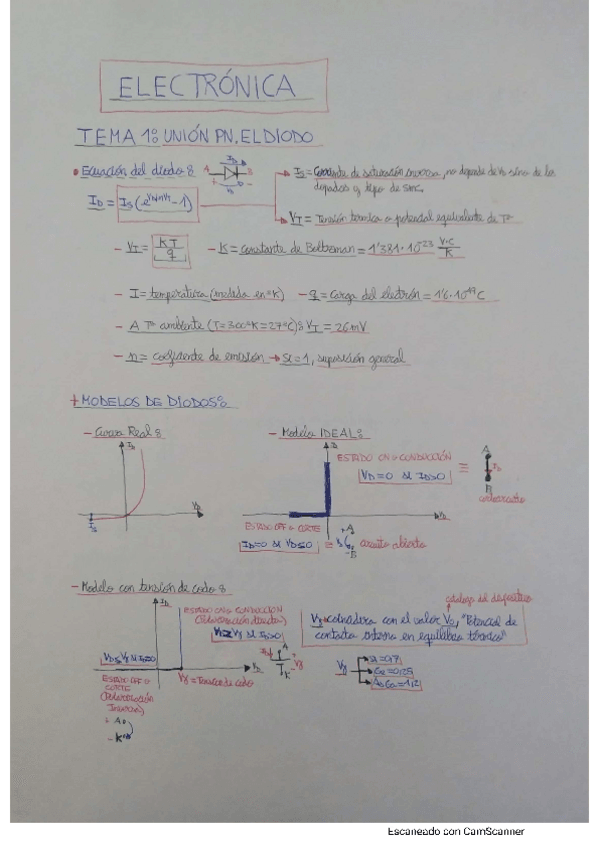 ELECTRÓNICA
TEMA 1: UNIÓN PN. EL DIODO
• Ecuación del diodo:
A I_D B
V_D
I_D = I_S (e^(V_D/nV_T) - 1)
I_S = Corriente de saturación inversa, no depende de V_D sino de los
dopados y tipo de
V_T = Tensión térmica o potencial equivalente de Tª
- V_T = KT/q - K = constante de Boltzman = 1'381·10^23 V·C/K
- T = temperatura (medida en ºK) - q = Carga del electrón = 1'6·10^-19 C
- A Tª ambiente (T = 300ºK = 27ºC): V_T = 26mV
- n = coeficiente de emisión → Si = 1, suposición general
+ MODELOS DE DIODOS:
- Curva Real: - Modelo IDEAL:
I_D
I_S
V_D
I_D
ESTADO ON → CONDUCCIÓN
V_D = 0 si I_D>0
≡
A
I_D
B
cortocircuito
ESTADO OFF → CORTE
V_D
I_D = 0 si V_D≤0 ≡ circuito abierto
+A
-B
- Modelo con tensión de codo:
I_D
ESTADO ON → CONDUCCIÓN
(Polarización directa)
V_D≥Vγ si I_D>0
V_D≤Vγ si I_D=0
V_D
Vγ = Tensión de codo
A
K
Vγ
ESTADO OFF →
CORTE
(Polarización
Inversa)
+ A
- K
catálogo del dispositivo
Vγ coincidera con el valor V_0, "Potencial de
contacto interno en equilibrio térmico"
Vγ
Si = 0,7
Ge = 0,25
AsGa = 1,2
Escaneado con CamScanner